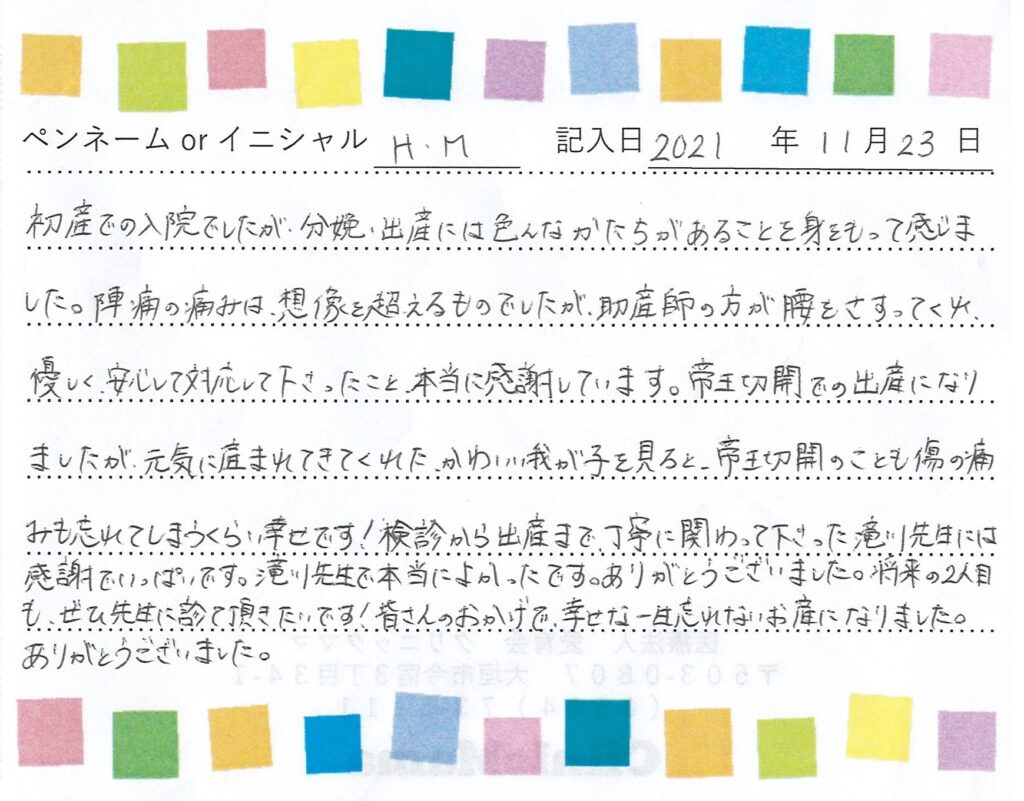 ペンネーム or イニシャル H.M 記入日 2021 年 11月 23 日
初産での入院でしたが、分娩、出産には色んなかたちがあることを身をもって感じま
した。陣痛の痛みは、想像を超えるものでしたが、助産師の方が腰をさすってくれ、
優しく、安心して対応して下さったこと、本当に感謝しています。帝王切開での出産になり
ましたが、元気に産まれてきてくれた、かわいい我が子を見ると、帝王切開のことも傷の痛
みも忘れてしまうくらい幸せです！検診から出産まで、丁寧に関わって下さった滝川先生には
感謝でいっぱいです。滝川先生で本当によかったです。ありがとうございました。将来の2人目
も、ぜひ先生に診て頂きたいです！皆さんのおかげで、幸せな一生忘れないお産になりました。
ありがとうございました。
医療法人 愛育会 クリニックママ
〒503-0807 大垣市今宿3丁目34-1